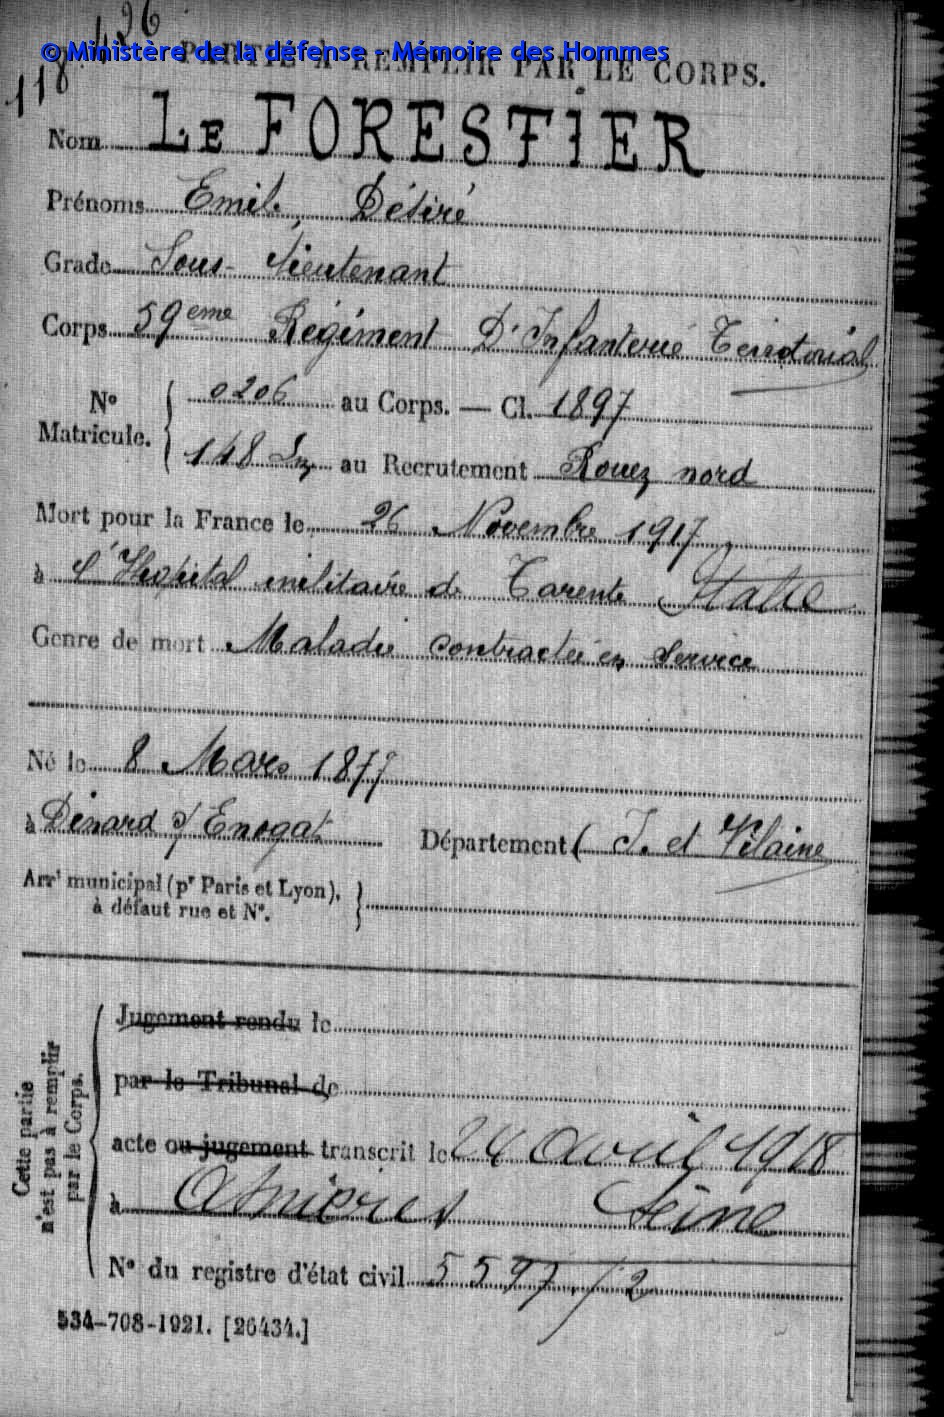 118.426
© Ministère de la défense - Mémoire des Hommes
PARTIE À REMPLIR PAR LE CORPS.
Nom LE FORESTIER
Prénoms Emile, Désiré
Grade Sous-lieutenant
Corps 59eme Régiment D'Infanterie Territorial
No Matricule. { 0206 au Corps. — Cl. 1897
148 au Recrutement Rouen nord
Mort pour la France le 26 Novembre 1917
à l'Hopital militaire de Tarente Italie
Genre de mort Maladie contractée en Service
Né le 8 Mars 1877
à Dinard St Enogat Département ( I. et Vilaine
Arrt municipal (pr Paris et Lyon), }
à défaut rue et No.
Cette partie
n'est pas à remplir
par le Corps.
Jugement rendu le
par le Tribunal de
acte ou jugement transcrit le 24 avril 1918
à Asnières Seine
No du registre d'état civil 5597/2
534-708-1921. [26434.]